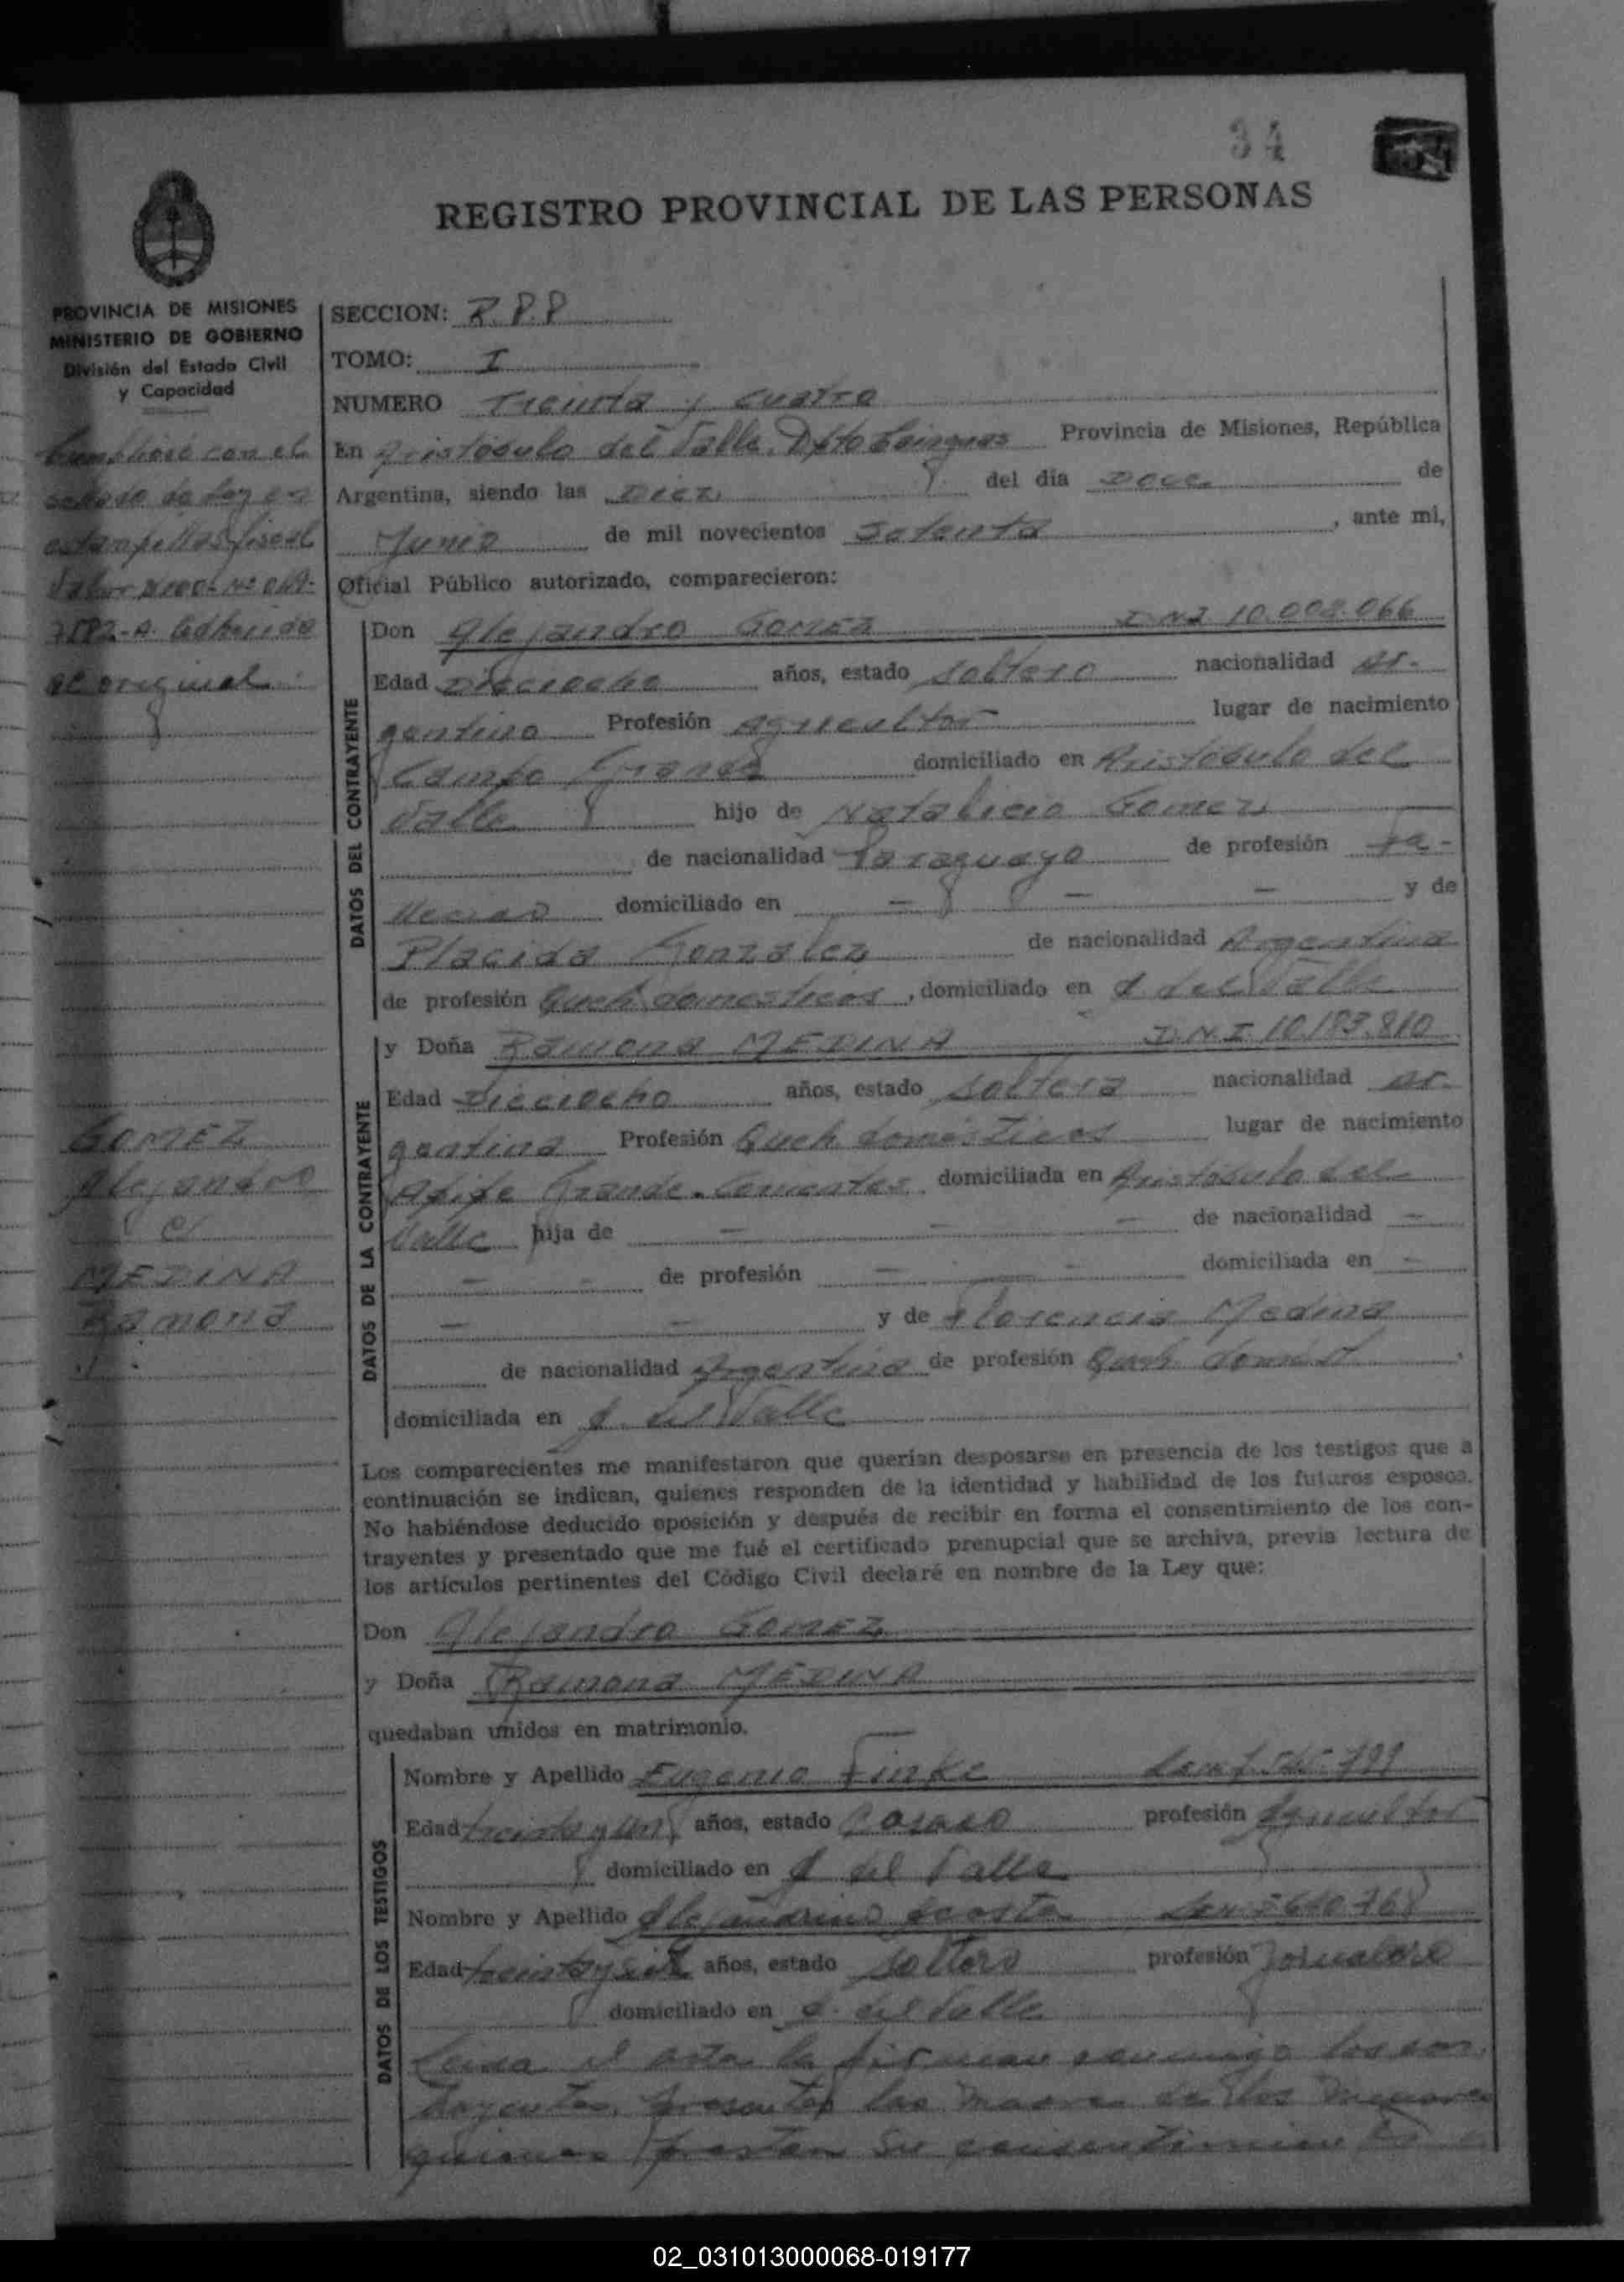 34
REGISTRO PROVINCIAL DE LAS PERSONAS
PROVINCIA DE MISIONES
MINISTERIO DE GOBIERNO
División del Estado Civil
y Capacidad
SECCION: R.P.P
TOMO: I
NUMERO Treinta y cuatro
En Aristóbulo del Valle. Dpto Cainguas Provincia de Misiones, República
Argentina, siendo las Diez del día Doce de
Junio de mil novecientos Setenta, ante mi,
Oficial Público autorizado, comparecieron:
con el
sellado de Ley en
estampillas fiscal
Valor
Adherido
al original
DATOS DEL CONTRAYENTE
Don Alejandro GOMEZ D.N.I 10.002.066
Edad Dieciocho años, estado soltero nacionalidad ar-
gentino Profesión agricultor lugar de nacimiento
Campo Grande domiciliado en Aristóbulo del
Valle hijo de Natalicio Gomez
de nacionalidad Paraguayo de profesión fa-
llecido domiciliado en - - - y de
Placida Gonzalez de nacionalidad Argentina
de profesión Queh. domesticos, domiciliado en A. del Valle
GOMEZ
Alejandro
c/
MEDINA
Ramona
DATOS DE LA CONTRAYENTE
y Doña Ramona MEDINA D.N.I. 10.183.810
Edad Dieciocho años, estado soltera nacionalidad ar-
gentina Profesión Queh. domésticos lugar de nacimiento
Apipe Grande. Corrientes domiciliada en Aristobulo del
Valle hija de - - - de nacionalidad -
- - de profesión - - domiciliada en -
- - y de Florencia Medina
de nacionalidad Argentina de profesión Queh. domést
domiciliada en A. del Valle
Los comparecientes me manifestaron que querían desposarse en presencia de los testigos que a
continuación se indican, quienes responden de la identidad y habilidad de los futuros esposos.
No habiéndose deducido oposición y después de recibir en forma el consentimiento de los con-
trayentes y presentado que me fué el certificado prenupcial que se archiva, previa lectura de
los artículos pertinentes del Código Civil declaré en nombre de la Ley que:
Don Alejandro GOMEZ
y Doña Ramona MEDINA
quedaban unidos en matrimonio.
DATOS DE LOS TESTIGOS
Nombre y Apellido Eugenio Finke
Edad treinta y un años, estado Casado profesión Agricultor
domiciliado en A del Valle
Nombre y Apellido Alejandrino Acosta
Edad años, estado soltero profesión Jornalero
domiciliado en A. del Valle
Leida el acta la firman conmigo los con
trayentes, presentes las madres de los menores
quienes prestan su consentimiento
02_031013000068-019177